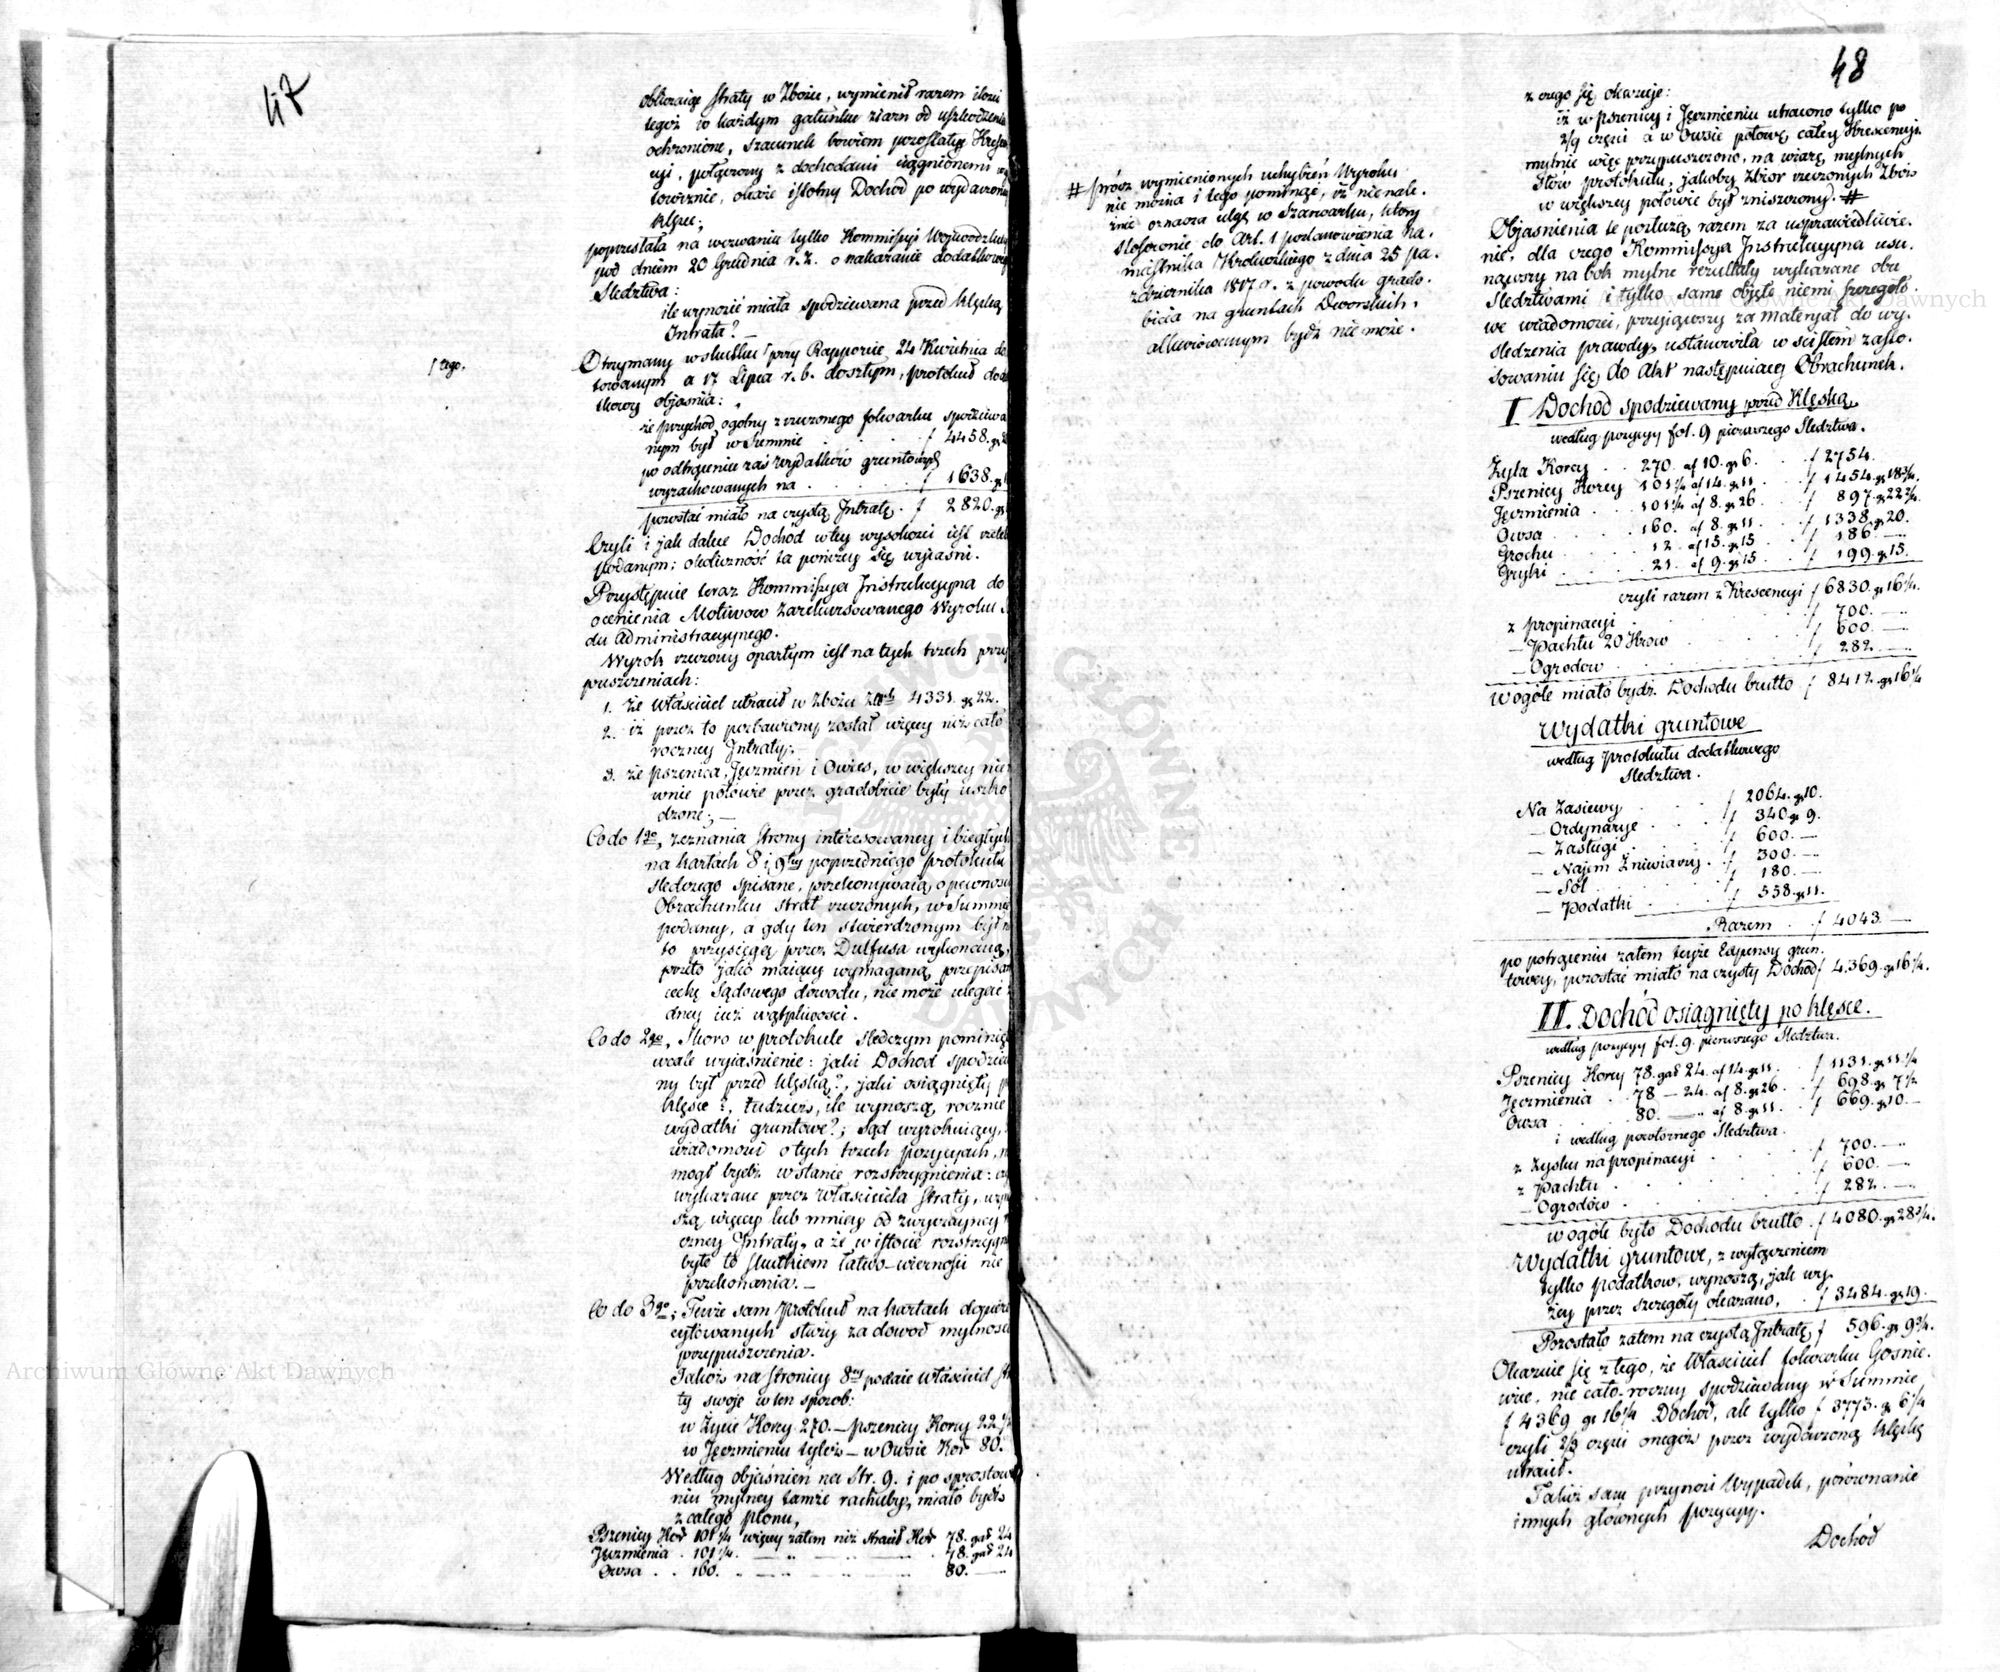 47
obliczaiąc straty w Zbożu, wymienił razem ilość
tegoż w każdym gatunku ziarn od uszkodzenia
ochronione, szacunek bowiem pozostałey
cyi, połączony z dochodami ciągnionemi
, okaże istotny Dochód po wydarzoney
klęsce;
poprzestała na wezwaniu tylko Kommissyi Wojewódzkiey
pod dniem 20 Grudnia r. z. o nakazanie dodatkowego
Śledztwa:
ile wynosić miała spodziewana przed klęską
Intrata? —
tego.
Otrzymany w skutku przy Rapporcie 24 Kwietnia da
towanym a 17 Lipca r. b. doszłym, protokuł doda
tkowy objaśnia:
że przychód ogólny z rzeczonego folwarku spodziewa
nym był w Summie . . . f 4458. gr
po odtrąceniu zaś wydatków gruntowych
wyrachowanych na . . . f 1638. gr
pozostać miało na czystą Intratę . f 2820. gr
Czyli i jak dalece Dochód w tey wysokości iest rzetel
podanym; okoliczność ta poniżey się wyjaśni.
Przystępuie teraz Kommissya Instrukcyyna do
ocenienia Motiwów zarekursowanego Wyroku
du Administracyynego.
Wyrok rzeczony opartym iest na tych trzech przy
puszczeniach:
1. że właściciel utracił w Zbożu 4331. gr 22.
2. iż przez to pozbawiony został więcey niż cało
roczney Intraty; —
3. że pszenica, Jęczmień i Owies, w większey nie
wnie połowie przez gradobicie były uszko
dzone; —
Co do 1go, zeznania strony interesowaney i biegłych
na kartach 8 i 9tey poprzedniego protokułu
śledczego spisane, przekonywaią o pewności
Obrachunku strat rzeczonych, w Summie
podaney, a gdy ten stwierdzonym był
to przysięgą przez Dulfusa wykonaną,
przeto jako maiący wymaganą przepisa
cechę Sądowego dowodu, nie może ulegać
dney iuż wątpliwości.
Co do 2go, Skoro w protokule śledczym pominię
wcale wyiaśnienie: jaki Dochód spodziewa
ny był przed klęską?, jaki osiągnięty p
klęsce?, tudzież, ile wynoszą rocznie
wydatki gruntowe?; Sąd wyrokuiący,
wiadomości o tych trzech pozycyach,
mógł bydź w stanie rozstrzygnienia:
wykazane przez właściciela straty, wyno
szą więcey lub mniey od zwyczayney
czney Intraty, a że w istocie rozstrzygn
było to skutkiem łatwo-wierności nie
przekonania. —
Co do 3go; Tenże sam protokuł na kartach dopiero
cytowanych służy za dowód mylności
przypuszczenia.
Jakoż na stronicy 8mey podaie właściciel stra
ty swoje w ten sposób:
w Życie Korcy 270. — pszenicy Korcy 22½
w Jęczmieniu tyleż — w Owsie Kor 80.
Według objaśnień na Str. 9. i po sprostowa
niu mylney tamże rachuby, miało bydź
z całego plonu,
Pszenicy Kor 101¼ więcey zatem niż stracił Kor 78. gar 24
Jęczmienia . 101¼. — — — . 78. gar 24
Owsa . . 160. — — — 80. —
# prócz wymienionych uchybień Wyroku
nie można i tego pominąć, iż nienale.
żnie oznacza ulgę w Szarwarku, który
stosownie do Art. 1 postanowienia Na.
miestnika Królewskiego z dnia 25 Pa.
ździernika 1817 r. z powodu grado.
bicia na gruntach Dworskich,
allewiowanym bydź nie może.
48
z czego się okazuje:
iż w pszenicy i Jęczmieniu utracono tylko po
2/9 części a w Owsie połowę całey Krescencyi.
mylnie więc przypuszczono, na wiarę mylnych
słów protokułu, jakoby zbiór rzeczonych Zbóż
w większey połowie był zniszczony. #
Objaśnienia te posłużą razem za usprawiedliwie.
nie, dla czego Kommissya Instrukcyyna usu.
nąwszy na bok mylne rezultaty wykazane obu
śledztwami i tylko same objęte niemi szczegóło.
we wiadomości, przyjąwszy za materyał do wy.
śledzenia prawdy, ustanowiła w ścisłem zasto.
sowaniu się do Akt następuiący Obrachunek.
I Dochód spodziewany przed Klęską
według pozycyy fol. 9 pierwszego śledztwa.
Żyta Korcy . . 270. af 10. gr 6. . . f 2754.
Pszenicy Korcy 101¼ af 14. gr 11. . f 1454. gr 18¾.
Jęczmienia . . 101¼ af 8. gr 26. . f 897. gr 22¾.
Owsa . . . 160. af 8. gr 11. . . f 1338. gr 20.
Grochu . . . 12. af 15. gr 15. . f 186. —
Gryki . . . 21. af 9. gr 15. . . f 199. gr 15.
czyli razem z Krescencyi f 6830. gr 16¼.
z propinacyi . . . f 700. —
— Pachtu 20 Krów . . f 600. —
— Ogrodów . . . f 282. —
w ogóle miało bydź Dochodu brutto f 8412. gr 16¼
Wydatki gruntowe
według Protokułu dodatkowego
śledztwa.
Na Zasiewy . . . f 2064. gr 10.
— Ordynarye . . f 340. gr 9.
— Zasługi . . . f 600. —
— Najem Żniwiarzy . . f 300. —
— Sól . . . f 180. —
— Podatki . . . f 558. gr 11.
Razem . . f 4043. —
po potrąceniu zatem teyże Expensy grun.
towey, pozostać miało na czysty Dochód f 4.369. gr 16¼.
II. Dochód osiągnięty po klęsce.
według pozycyy fol. 9. pierwszego śledztwa.
Pszenicy Korcy 78. gar 24. af 14. gr 11. . f 1131. gr 11¼
Jęczmienia . . 78 — 24. af 8. gr 26 . f 698. gr 7½
Owsa . . . 80. — af 8. gr 11. . f 669. gr 10. —
i według powtórnego śledztwa.
z Zysku na propinacyi . . f 700. —
z Pachtu . . . f 600. —
— Ogrodów . . . f 282. —
w ogóle było Dochodu brutto . f 4080. gr 28¾.
Wydatki gruntowe, z wyłączeniem
tylko podatków, wynoszą, jak wy
żey przez szczegóły okazano, . f 3484. gr 19.
Pozostało zatem na czystą Intratę f 596. gr 9¾.
Okazuie się z tego, że Właściciel folwarku Gosnie.
wice, nie cało-roczny spodziewany w Summie
f 4369 gr 16¼ Dochód, ale tylko f 3773. gr 6¼
czyli 2/3 części onegoż przez wydarzoną klęskę
utracił.
Takiż sam przynosi wypadek, porównanie
innych głównych pozycyy.
Dochód
Archiwum Główne Akt Dawnych
Archiwum Główne Akt Dawnych
ARCHIWUM GŁÓWNE AKT DAWNYCH